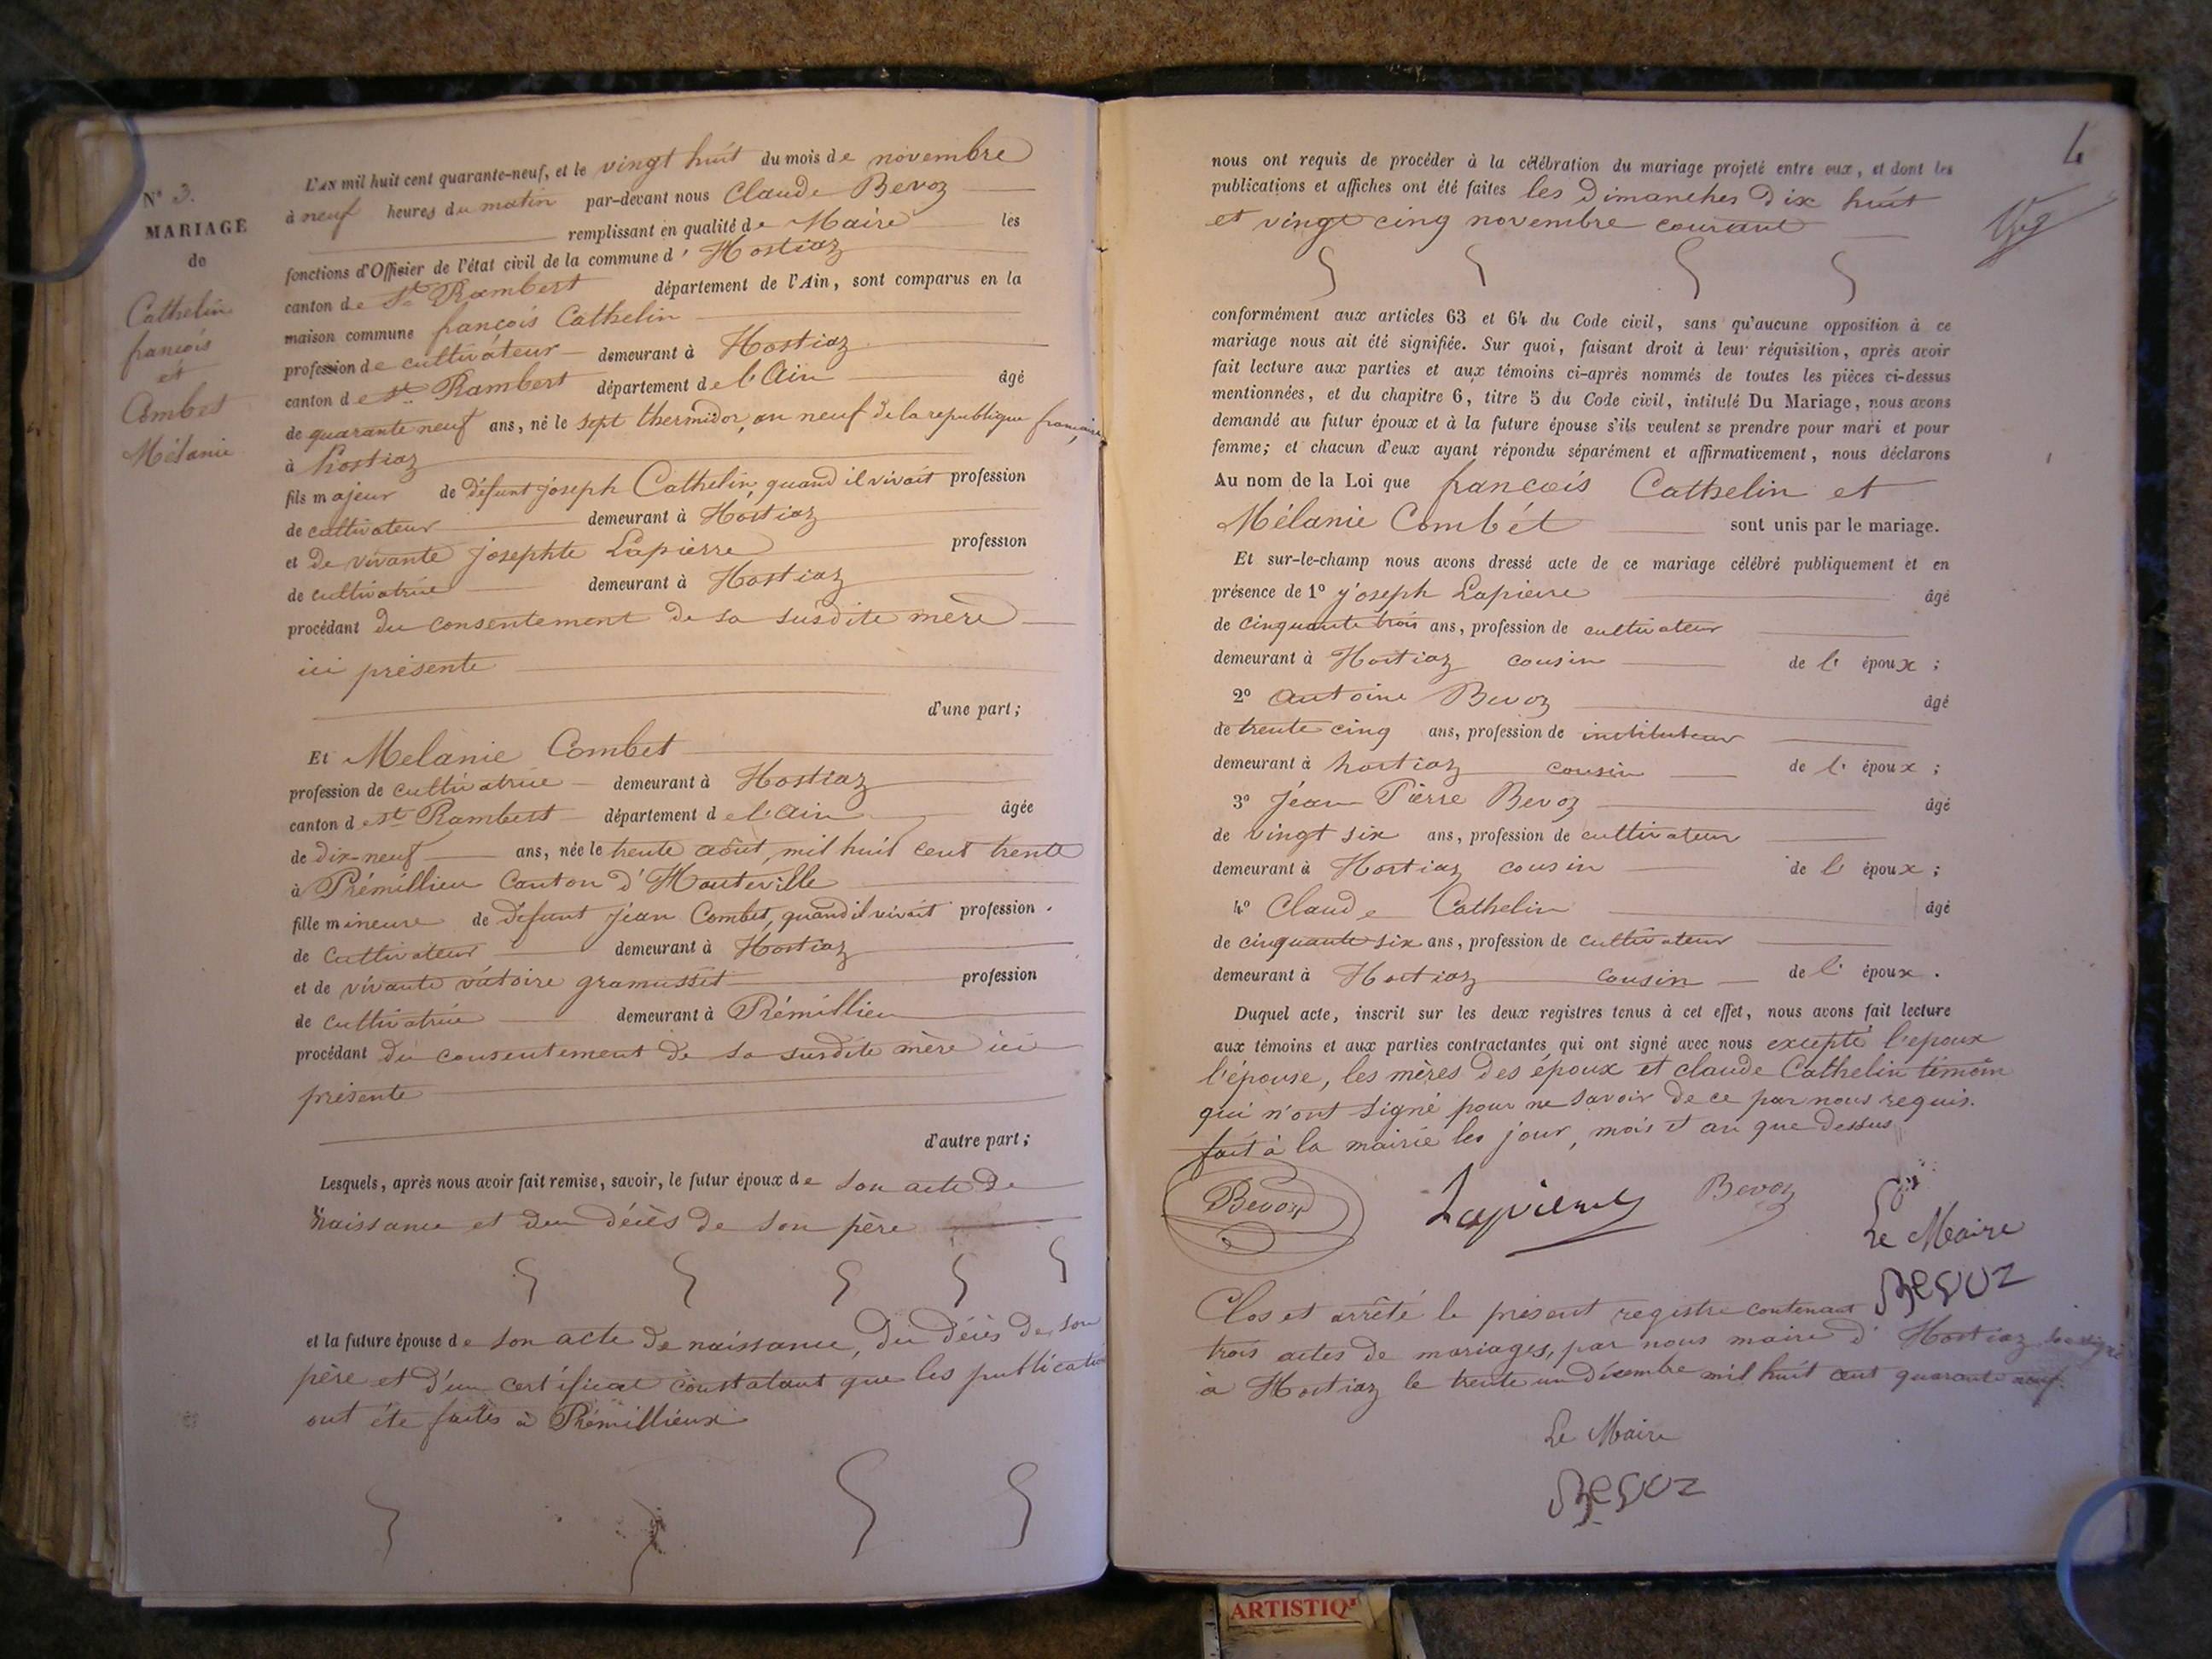 N° 3.
MARIAGE
de
Cathelin
françois
et
Combet
Mélanie
L'AN mil huit cent quarante-neuf, et le vingt huit du mois de novembre
à neuf heures du matin par-devant nous Claude Bevoz
remplissant en qualité de Maire les
fonctions d'Officier de l'état civil de la commune d' Hostiaz
canton de St Rambert département de l'Ain, sont comparus en la
maison commune françois Cathelin
profession de cultivateur demeurant à Hostiaz
canton de St Rambert département de l'Ain âgé
de quarante neuf ans, né le sept thermidor, an neuf de la republique française,
à hostiaz
fils majeur de défunt joseph Cathelin, quand il vivait profession
de cultivateur demeurant à Hostiaz
et de vivante josephte Lapierre profession
de cultivatrice demeurant à Hostiaz
procédant du consentement de sa susdite mère
ici présente
d'une part;
Et Melanie Combet
profession de cultivatrice demeurant à Hostiaz
canton de St Rambert département de l'Ain âgée
de dix-neuf ans, née le trente août, mil huit cent trente
à Prémillieu Canton d'Hauteville
fille mineure de défunt jean Combet, quand il vivait profession
de Cultivateur demeurant à Hostiaz
et de vivante victoire gramusset profession
de cultivatrice demeurant à Prémillieu
procédant du consentement de sa susdite mère ici
présente
d'autre part;
Lesquels, après nous avoir fait remise, savoir, le futur époux de son acte de
naissance et du décès de son père
et la future épouse de son acte de naissance, du décès de son
père et d'un certificat constatant que les publications
ont été faites à Prémillieux
4
nous ont requis de procéder à la célébration du mariage projeté entre eux, et dont les
publications et affiches ont été faites les Dimanches Dix huit
et vingt cinq novembre courant
conformément aux articles 63 et 64 du Code civil, sans qu'aucune opposition à ce
mariage nous ait été signifiée. Sur quoi, faisant droit à leur réquisition, après avoir
fait lecture aux parties et aux témoins ci-après nommés de toutes les pièces ci-dessus
mentionnées, et du chapitre 6, titre 5 du Code civil, intitulé Du Mariage, nous avons
demandé au futur époux et à la future épouse s'ils veulent se prendre pour mari et pour
femme; et chacun d'eux ayant répondu séparément et affirmativement, nous déclarons
Au nom de la Loi que françois Cathelin et
Mélanie Combét sont unis par le mariage.
Et sur-le-champ nous avons dressé acte de ce mariage célébré publiquement et en
présence de 1° joseph Lapierre âgé
de cinquante trois ans, profession de cultivateur
demeurant à Hostiaz cousin de l' époux;
2° Antoine Bevoz âgé
de trente cinq ans, profession de instituteur
demeurant à hostiaz cousin de l' époux;
3° Jean Pierre Bevoz âgé
de vingt six ans, profession de cultivateur
demeurant à Hostiaz cousin de l' époux;
4° Claude Cathelin âgé
de cinquante six ans, profession de cultivateur
demeurant à Hostiaz cousin de l' époux.
Duquel acte, inscrit sur les deux registres tenus à cet effet, nous avons fait lecture
aux témoins et aux parties contractantes qui ont signé avec nous excepté l'époux
l'épouse, les mères des époux et claude Cathelin témoin
qui n'ont signé pour ne savoir de ce par nous requis.
fait à la mairie les jour, mois et an que dessus
Bevoz Lapierre Bevoz
Le Maire
Bevoz
Clos et arrêté le présent registre contenant
trois actes de mariages, par nous maire d' Hostiaz soussigné
à Hostiaz le trente un Décembre mil huit cent quarante neuf.
Le Maire
Bevoz
ARTISTIQ